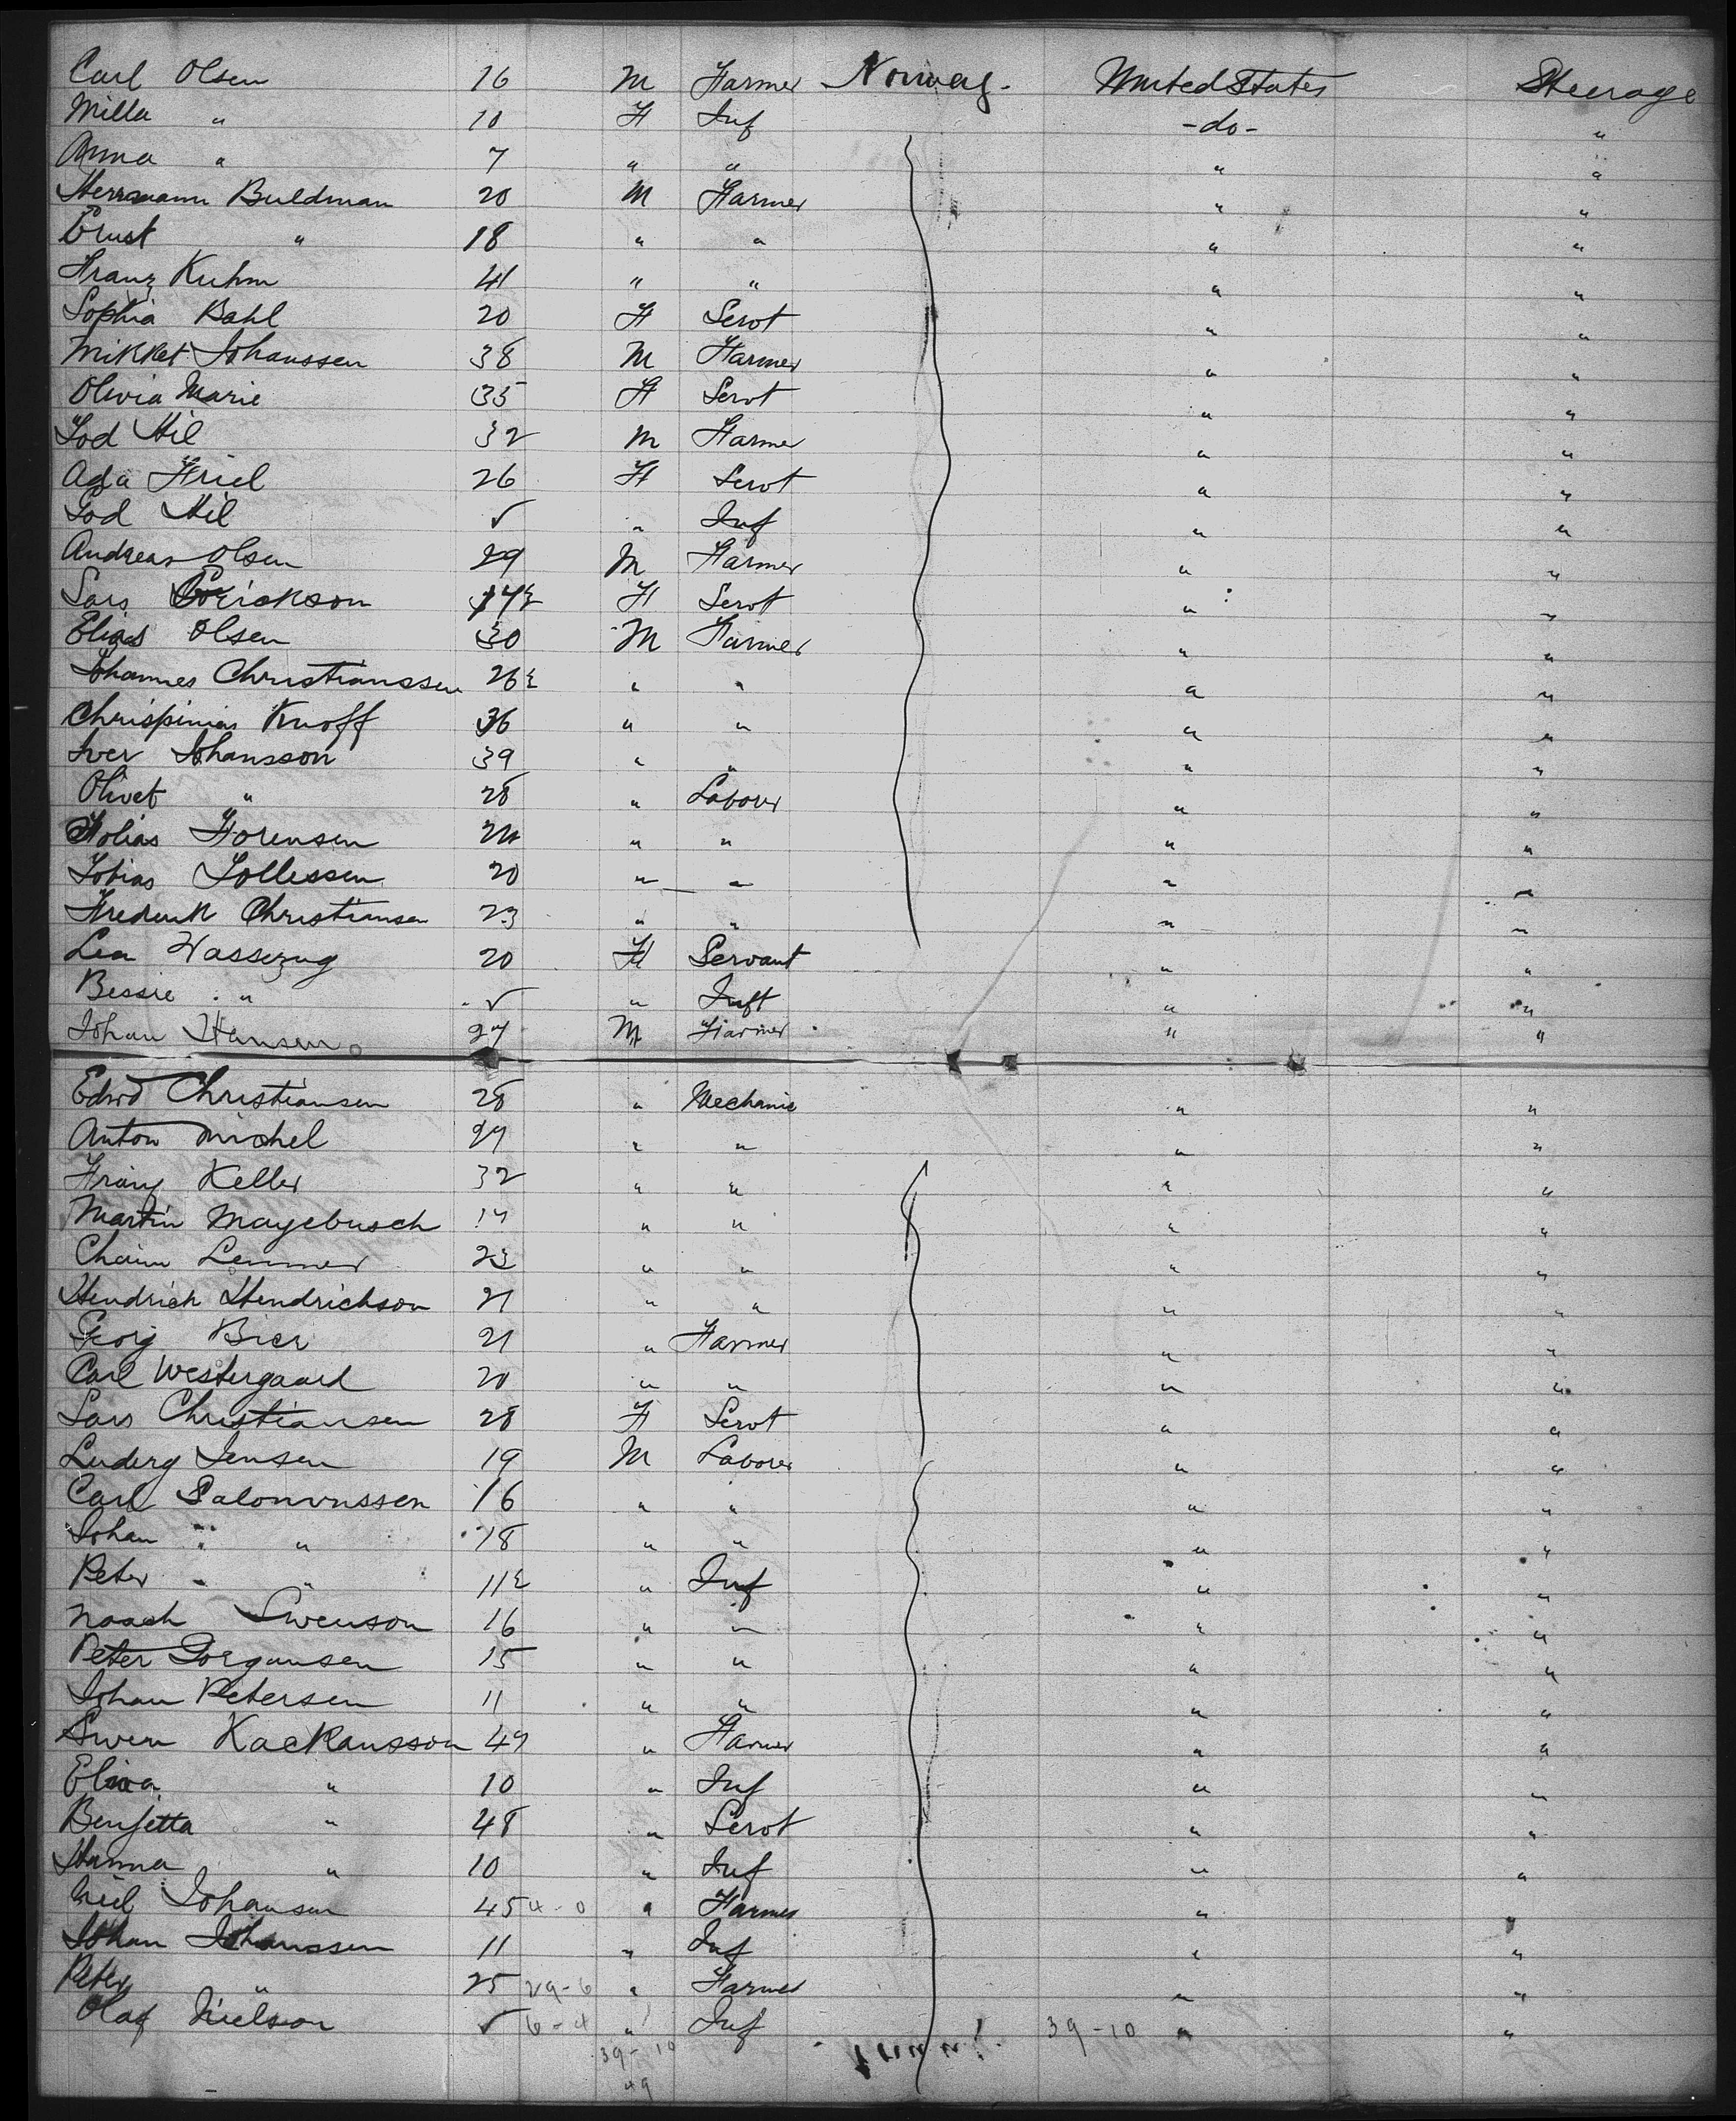 Carl Olsen 16 M Farmer Norway. United States Steerage
Milla " 10 F Inf -do- "
Anna " 7 " " " "
Herrmann Buldman 20 M Farmer " "
Ernst " 18 " " " "
Franz Kuhm 41 " " " "
Sophia Bahl 20 F Servt " "
Mikket Johanssen 38 M Farmer " "
Olivia Marie 35 F Servt " "
Lod Hil 32 M Farmer " "
Ada Friel 26 F Servt " "
Lod Hil ✓ " Inf " "
Andreas Olsen 29 M Farmer " "
Lars Erickson F Servt " "
Elias Olsen 30 M Farmer " "
Johannes Christianssen 26 " " " "
Chrispinias Knoff 36 " " " "
Iver Johansson 39 " " " "
Olivet " 28 " Laborer " "
Tolias Forensen 24 " " " "
Tobias Tollessen 20 " " " "
Frederik Christiansen 23 " " " "
Lea Wasserzug 20 F Servant " "
Bessie " ✓ " Inft " "
Johan Hansen 27 M Farmer " "
Edwd Christiansen 28 " Mechanic " "
Anton Michel 27 " " " "
Franz Keller 32 " " " "
Martin Mayebusch 17 " " " "
Chaim Lemmer 23 " " " "
Hendrich Hendrichson 21 " " " "
Georg Bier 21 " Farmer " "
Carl Westergaard 20 " " " "
Lars Christiansen 28 F Servt " "
Luderg Jensen 19 M Laborer " "
Carl Salomonssen 16 " " " "
Johan " " 18 " " " "
Peter " " 11 " Inf " "
Noach Swenson 16 " " " "
Peter Jorgansen 15 " " " "
Johan Petersen 11 " " " "
Swen Kackansson 49 " Farmer " "
Elina " 10 " Inf " "
Benjetta " 48 " Servt " "
Hanna " 10 " Inf " "
Neil Johansen 45 4-0 " Farmer " "
Johan Johanssen 11 " Inf " "
Peter " 25 29-6 " Farmer " "
Olaf Nielson ✓ 6-4 " Inf 39-10 " "
39-10
49